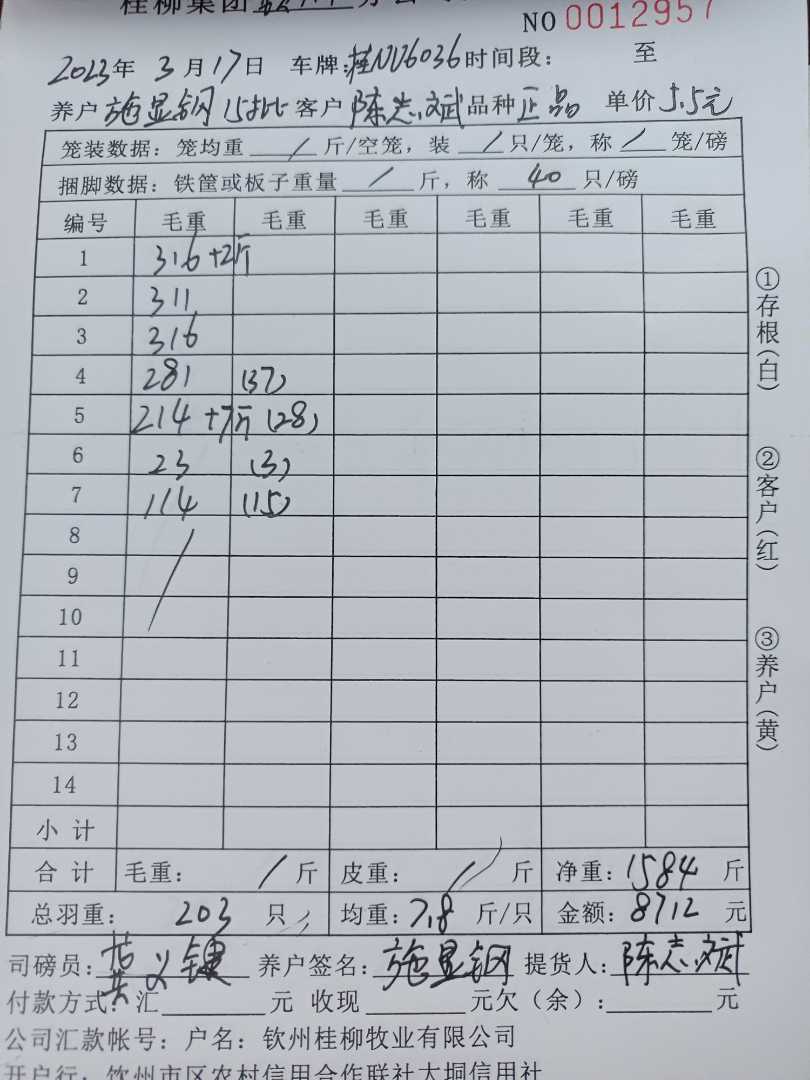 桂柳集团
NO 0012957
2023年 3月17日 车牌:桂NU6036 时间段: 至
养户 施显钢 15批 客户 陈志斌 品种 正品 单价 5.5元
笼装数据: 笼均重 / 斤/空笼, 装 / 只/笼, 称 / 笼/磅
捆脚数据: 铁筐或板子重量 / 斤, 称 40 只/磅
编号 毛重 毛重 毛重 毛重 毛重 毛重
1 316+2斤
2 311
3 316
4 281 (37)
5 214+7斤 (28)
6 23 (3)
7 114 (15)
8
9
10
11
12
13
14
小计
合计 毛重: / 斤 皮重: / 斤 净重: 1584 斤
总羽重: 203 只 均重: 7.8 斤/只 金额: 8712 元
司磅员: 黄义键 养户签名: 施显钢 提货人: 陈志斌
付款方式: 汇 元 收现 元欠(余): 元
公司汇款帐号: 户名: 钦州桂柳牧业有限公司
开户行: 钦州市区农村信用合作联社大垌信用社
①存根(白)
②客户(红)
③养户(黄)